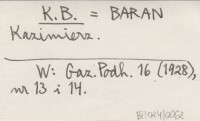 K.B. = BARAN
Kazimierz.
W: Gaz. Podh. 16 (1928),
nr 13 i 14.